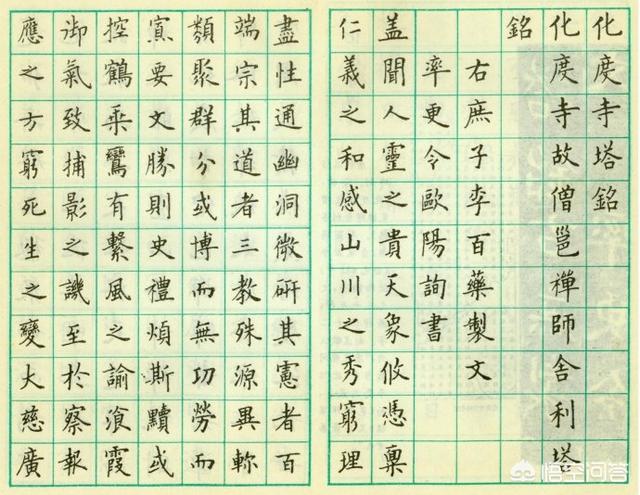 化度寺塔銘
化度寺故僧邕禪師舍利塔
銘
右庶子李百藥製文
率更令歐陽詢書
盖聞人靈之貴天象攸憑禀
仁義之和感山川之秀窮理
盡性通幽洞微研其憲者百
端宗其道者三教殊源異軫
類聚群分或博而無功勞而
寡要文勝則史禮煩斯黷或
控鶴乘鸞有繫風之諭飡霞
御氣致捕影之譏至於察報
應之方窮死生之變大慈廣
悟空问答